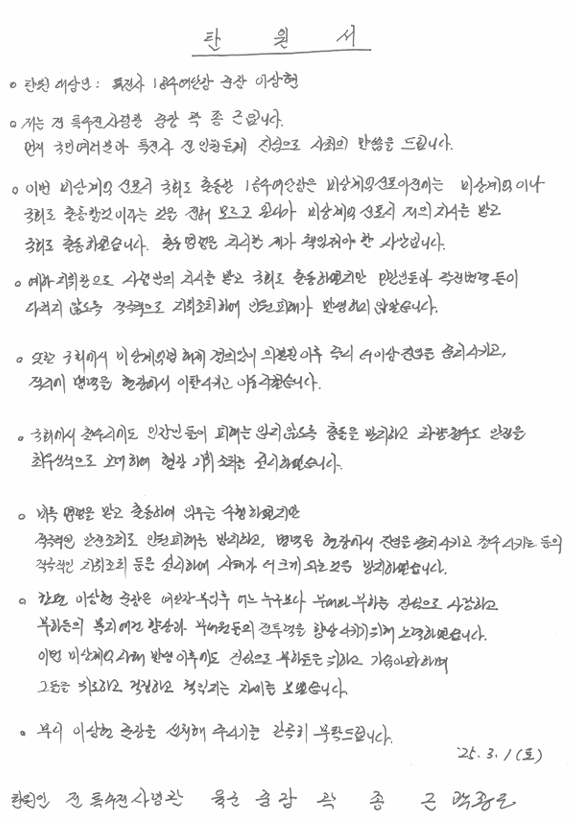 탄 원 서
○ 탄원 대상인 : 특전사 1공수여단장 준장 이상현
○ 저는 전 특수전사령관 중장 곽 종 근입니다.
먼저 국민여러분과 특전사 전 인원들에게 진심으로 사죄의 말씀을 드립니다.
○ 이번 비상계엄 선포시 국회로 출동한 1공수여단장은 비상계엄선포이전에는 비상계엄이나
국회로 출동할것이라는 것을 전혀 모르고 있다가 비상계엄 선포시 저의 지시를 받고
국회로 출동하였습니다. 출동명령을 지시한 제가 책임져야 할 사안입니다.
○ 예하지휘관으로 사령관의 지시를 받고 국회로 출동하였지만 민간인들과 작전병력 등이
다치지 않도록 적극적으로 지휘조치하여 인원피해가 발생하지 않았습니다.
○ 또한 국회에서 비상계엄령 해제 결의안이 의결된 이후 즉시 더이상 진입을 중지시키고,
적시에 병력을 현장에서 이탈시키고 이동하였습니다.
○ 국회에서 철수시에도 민간인들이 피해를 입지 않도록 충돌을 방지하고 차량철수도 안전을
최우선적으로 고려하여 현장 지휘조치를 실시하였습니다.
○ 비록 명령을 받고 출동하여 임무를 수행하였지만
적극적인 안전조치로 인원피해를 방지하고, 병력을 현장에서 진입을 중지시키고 철수시키는 등의
적극적인 지휘조치 등을 실시하여 사태가 더 크게 되는것을 방지하였습니다.
○ 한편 이상현 준장은 여단장 부임후 어느 누구보다 부대와 부하를 진심으로 사랑하고
부하들의 복지여건 향상과 부대원들의 전투력을 향상시키기 위해 노력하였습니다.
이번 비상계엄사태 발생 이후에도 진심으로 부하들을 위하고 가슴아파하며
그들을 위로하고 걱정하고 책임지는 자세를 보였습니다.
○ 부디 이상현 준장을 선처해 주시기를 간곡히 부탁드립니다.
'25. 3. 1 (토)
탄원인 전 특수전사령관 육군 중장 곽 종 근 곽종근